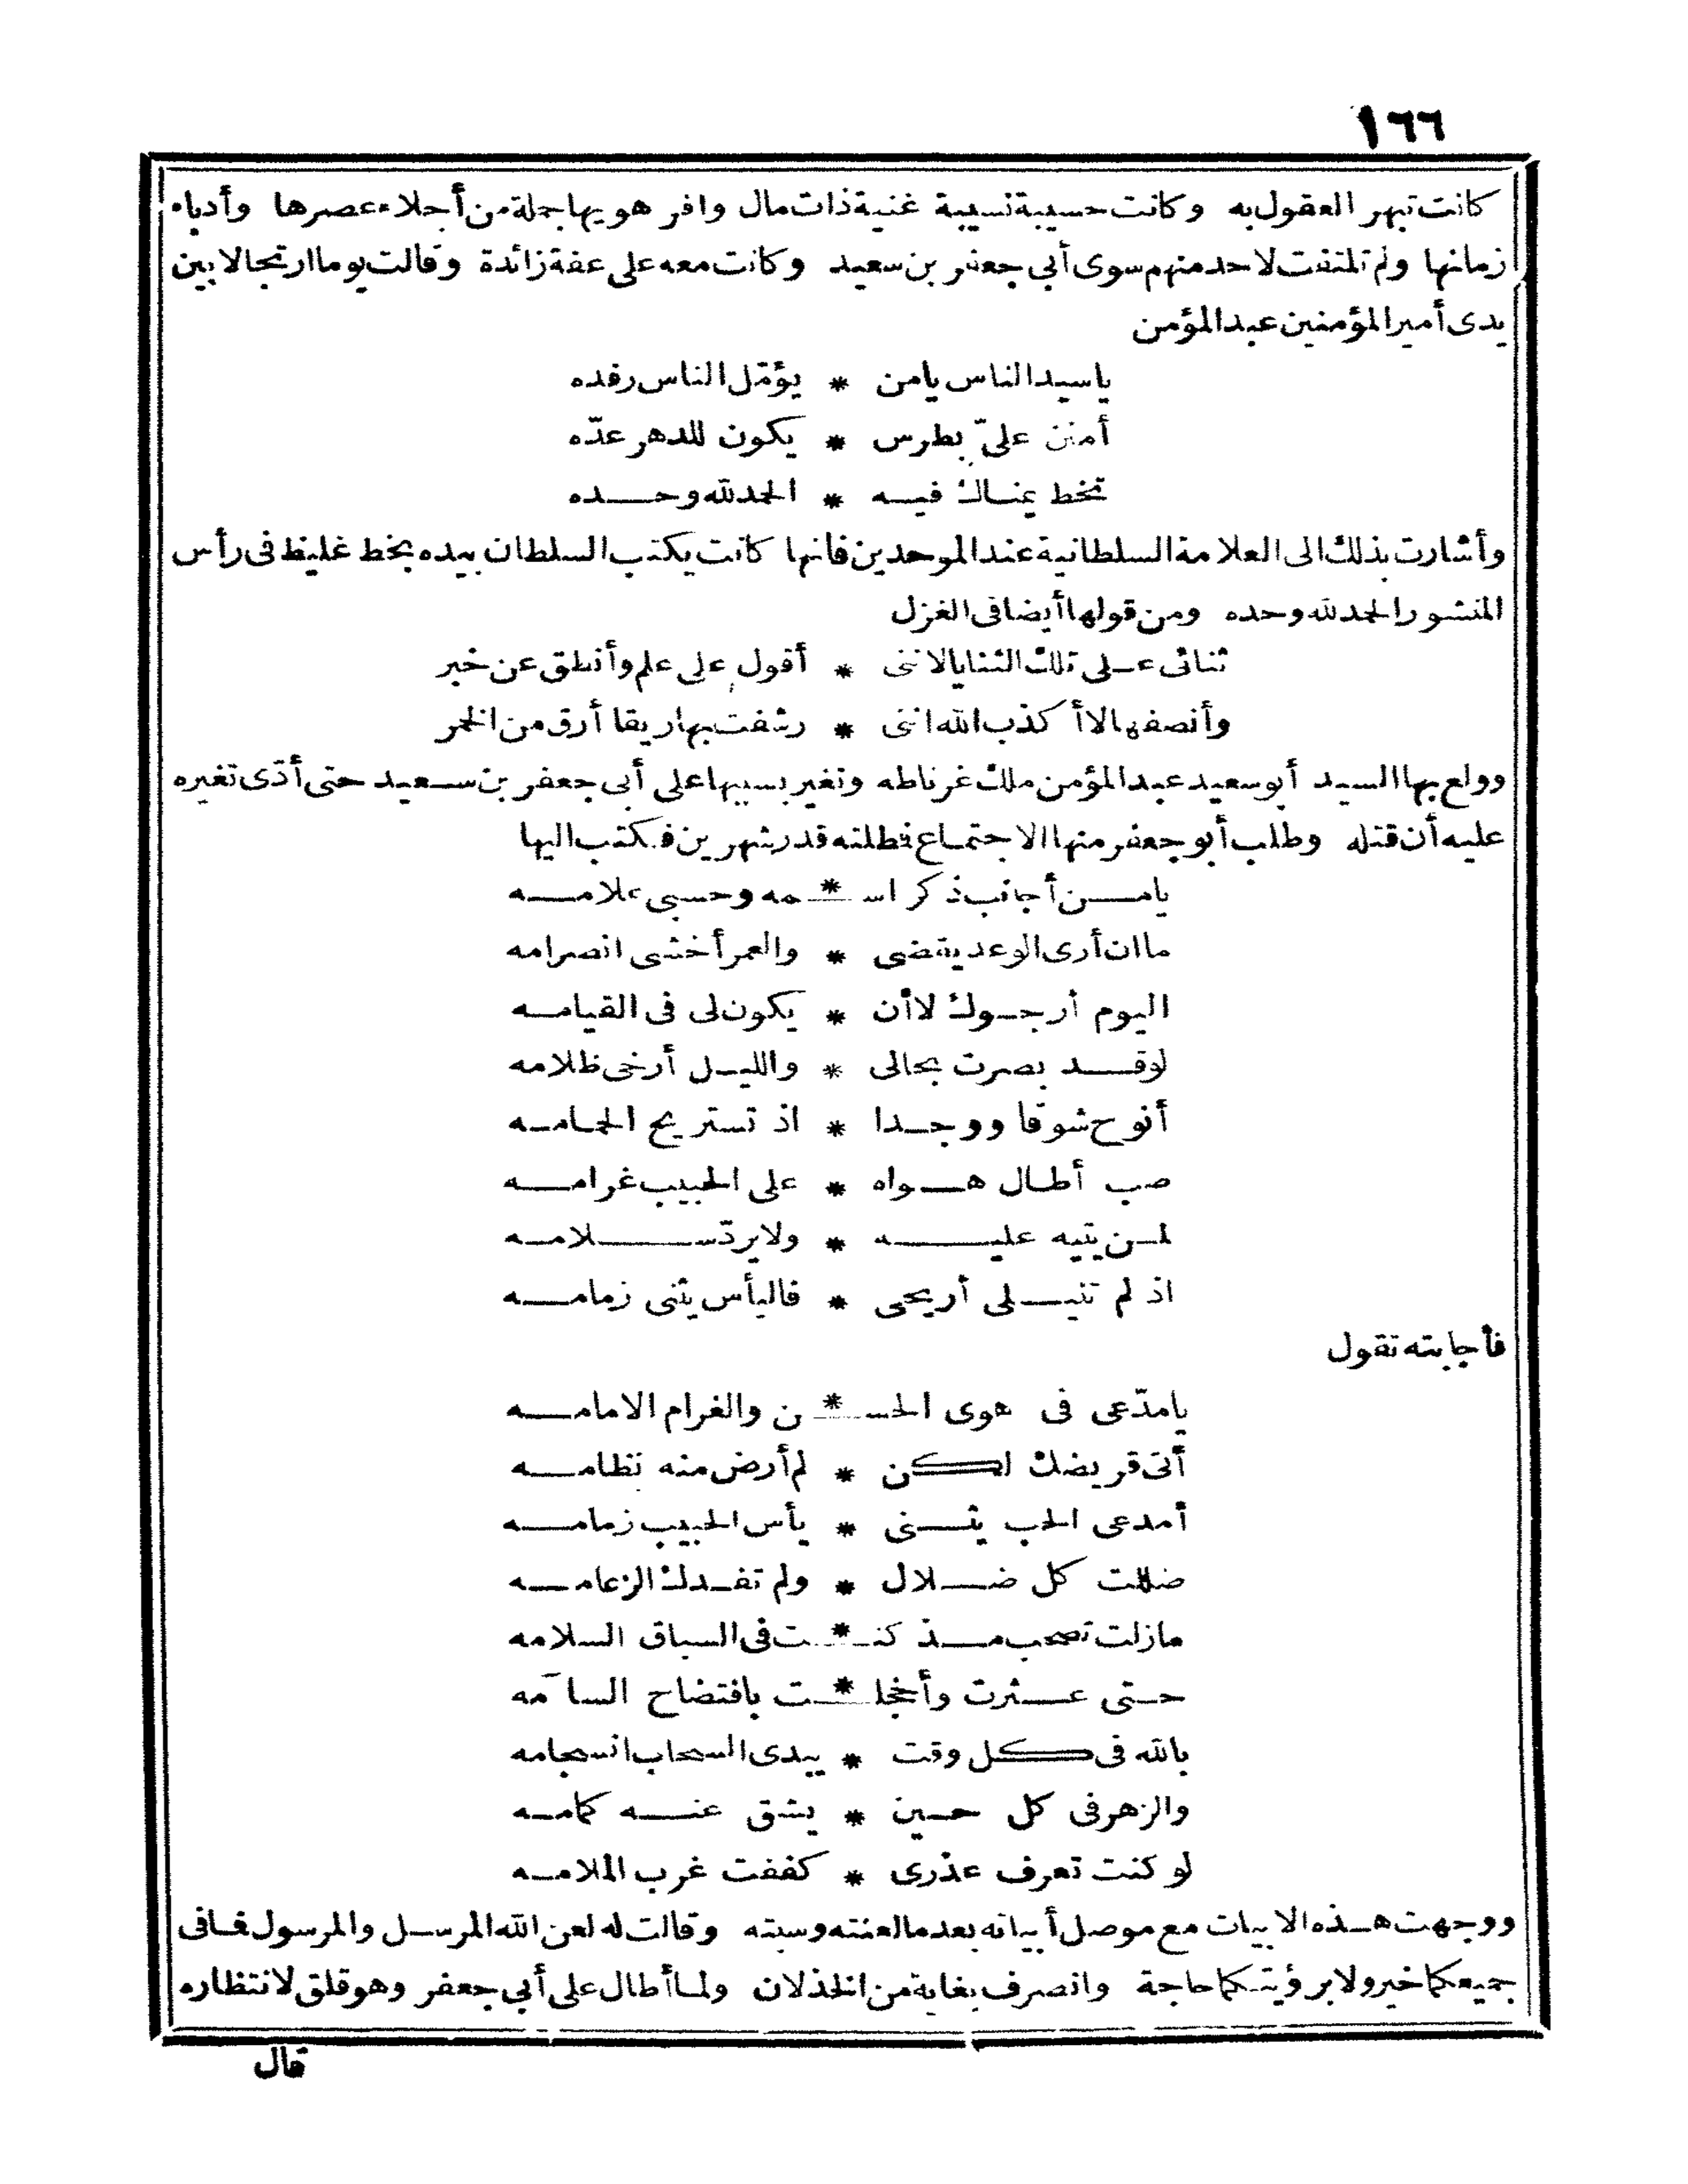 ١٦٦
كانت تبهر العقول به وكانت حسيبة نسيبة غنية ذات مال وافر هويها جملة من أجلاء عصرها وأدباء
زمانها ولم تلتفت لاحد منهم سوى أبي جعفر بن سعيد وكانت معه على عفة زائدة وقالت يوما ارتجالا بين
يدى أمير المؤمنين عبد المؤمن
ياسيد الناس يامن * يؤمّل الناس رفده
أمنن علىّ بطرس * يكون للدهر عدّه
تخط يمناك فيه * الحمد لله وحده
وأشارت بذلك الى العلامة السلطانية عند الموحدين فانها كانت يكتب السلطان بيده بخط غليظ فى رأس
المنشور الحمد لله وحده ومن قولها أيضا فى الغزل
ثنائى على تلك الثنايا لاننى * أقول على علم وأنطق عن خبر
وأنصفها لا أكذب الله اننى * رشفت بها ريقا أرق من الخمر
وولع بها السيد أبو سعيد عبد المؤمن ملك غرناطه وتغير بسببها على أبى جعفر بن سعيد حتى أدّى تغيره
عليه أن قتله وطلب أبو جعفر منها الاجتماع فطلته قدر شهرين فكتب اليها
يا من أجانب ذكر اسـ * ـمه وحسبى علامه
ما ان أرى الوعد يقضى * والعمر أخشى انصرامه
اليوم أرجوك لا أن * يكون لى فى القيامه
لو قد بصرت بحالى * والليل أرخى ظلامه
أنوح شوقا ووجدا * اذ تستريح الحمامه
صب أطال هواه * على الحبيب غرامه
لمن يتيه عليه * ولا يردّ سلامه
اذ لم تنيلى أريحى * فاليأس يثنى زمامه
فأجابته تقول
يا مدّعى فى هوى الحسـ * ـن والغرام الامامه
أتى قريضك لكن * لم أرض منه نظامه
أمدعى الحب يثنى * يأس الحبيب زمامه
ضللت كل ضلال * ولم تفدك الزعامه
مازلت تصحب مذ كنـ * ـت فى السباق السلامه
حتى عثرت وأخجلـ * ـت بافتضاح السآمه
بالله فى كل وقت * يبدى السحاب انسجامه
والزهر فى كل حين * يشق عنه كمامه
لو كنت تعرف عذرى * كففت غرب الملامه
ووجهت هذه الابيات مع موصل أبياته بعدما لعنته وسبته وقالت له لعن الله المرسل والمرسول فما فى
جميعكما خير ولا برؤيتكما حاجة وانصرف بغاية من الخذلان ولما أطال على أبي جعفر وهو قلق لانتظاره
قال